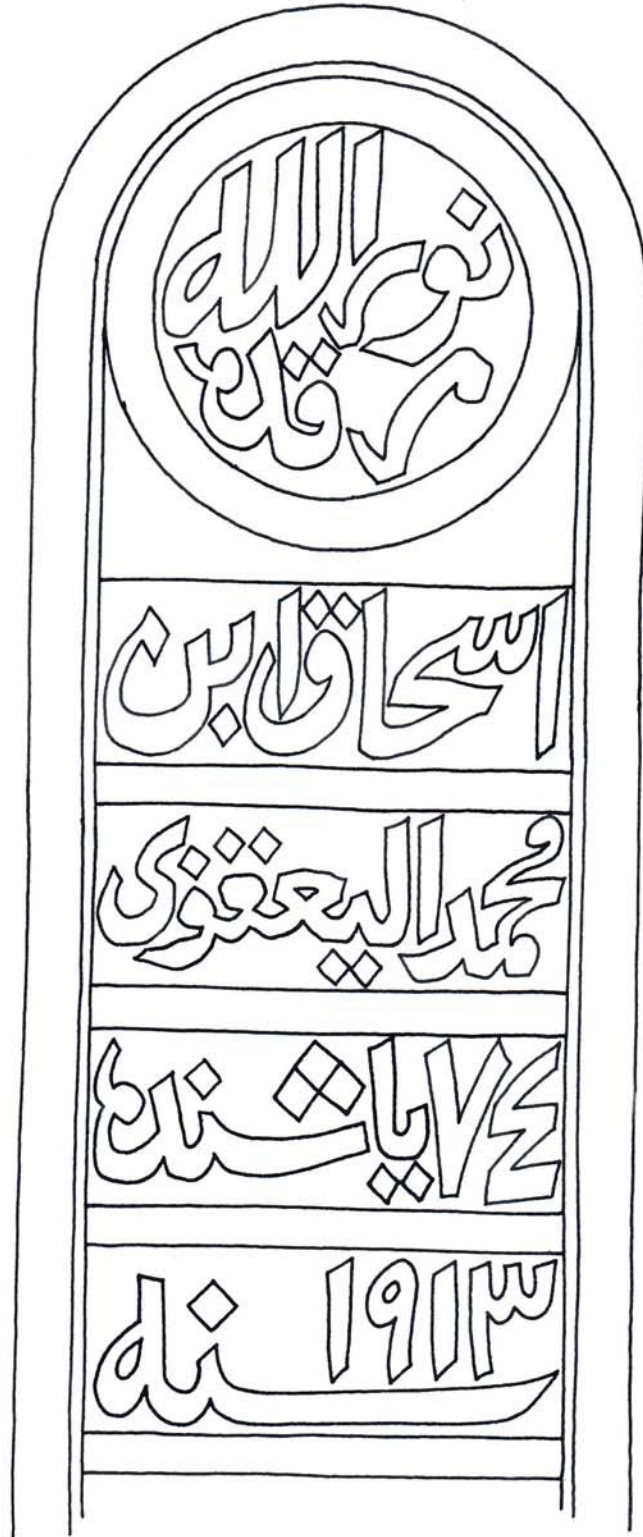 نور الله
مرقده
اسحاق ابن
محمد اليعقوبى
٧٤ ياشنده
سنه ١٩١٣